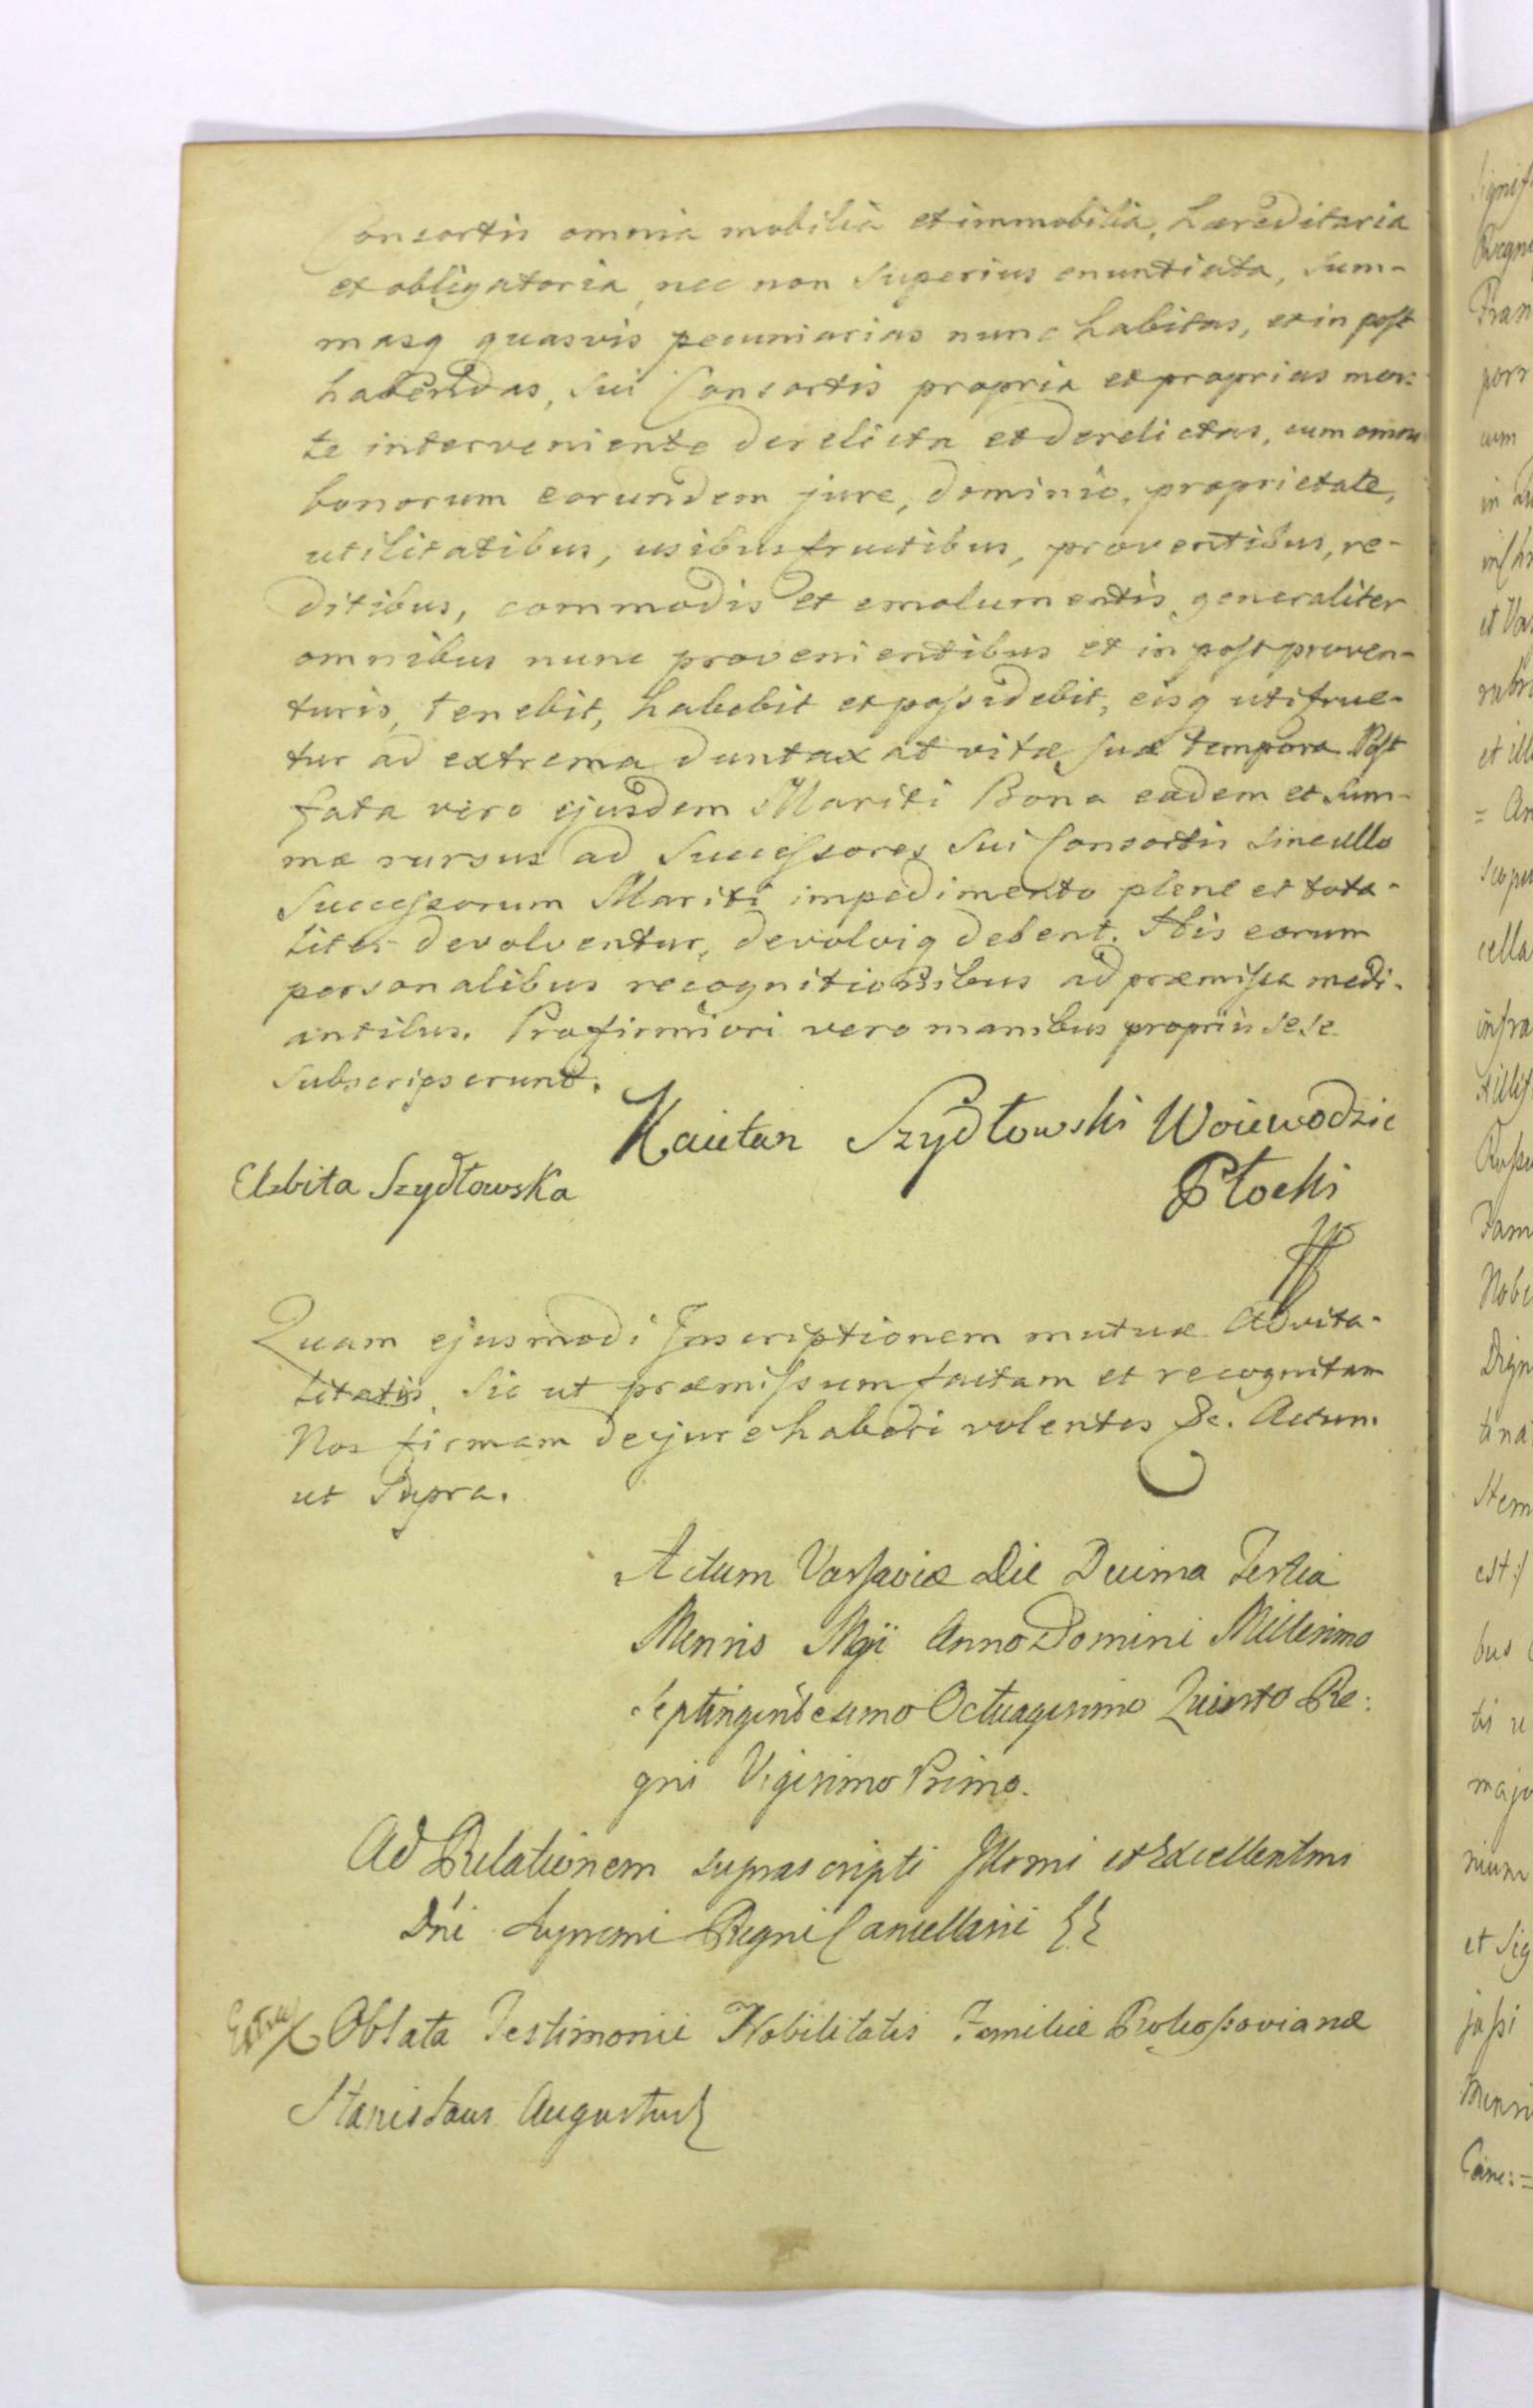 Consortis omnia mobilia et immobilia, haereditaria
et obligatoria, nec non Superius enuntiata, Sum-
masq quasvis pecuniarias nunc habitas, et in post
habendas, Sui Consortis propria et proprias mor-
te interveniente derelicta et derelictas, cum omni
bonorum eorundem jure, dominio, proprietate,
utilitatibus, usibusfructibus, proventibus, re-
ditibus, commodis et emolumentis generaliter
omnibus nunc provenientibus et in post proven-
turis, tenebit, habebit et possidebit, eisq utifrue-
tur ad extrema duntaxat vitæ suæ tempora. Post
fata vero ejusdem Mariti Bona eadem et Sum-
mæ rursus ad Successores Sui Consortis sine ullo
Successorum Mariti impedimento plene et tota-
liter devolventur, devolviq debent. His eorum
personalibus recognitionibus ad præmissa medi-
antibus. Pro firmiori vero manibus propriis sese
Subscripserunt.
Kaietan Szydłowski Woiewodzic
Płocki
Elzbita Szydłowska
Quam ejusmodi Inscriptionem mutuæ Advita-
litatis, Sic ut præmissum factam et recognitam
Nos firmam de jure haberi volentes &c. Actum
ut Supra.
Actum Varsaviæ Die Decima Tertia
Mensis Maji Anno Domini Millesimo
Septingentesimo Octuagesimo Quinto Re:
gni Vigesimo Primo.
Ad Relationem suprascripti Illsmi et Excellentmi
Dni Supremi Regni Cancellarii
Extra Oblata Testimonii Nobilitatis Familiæ
Stanislaus Augustus